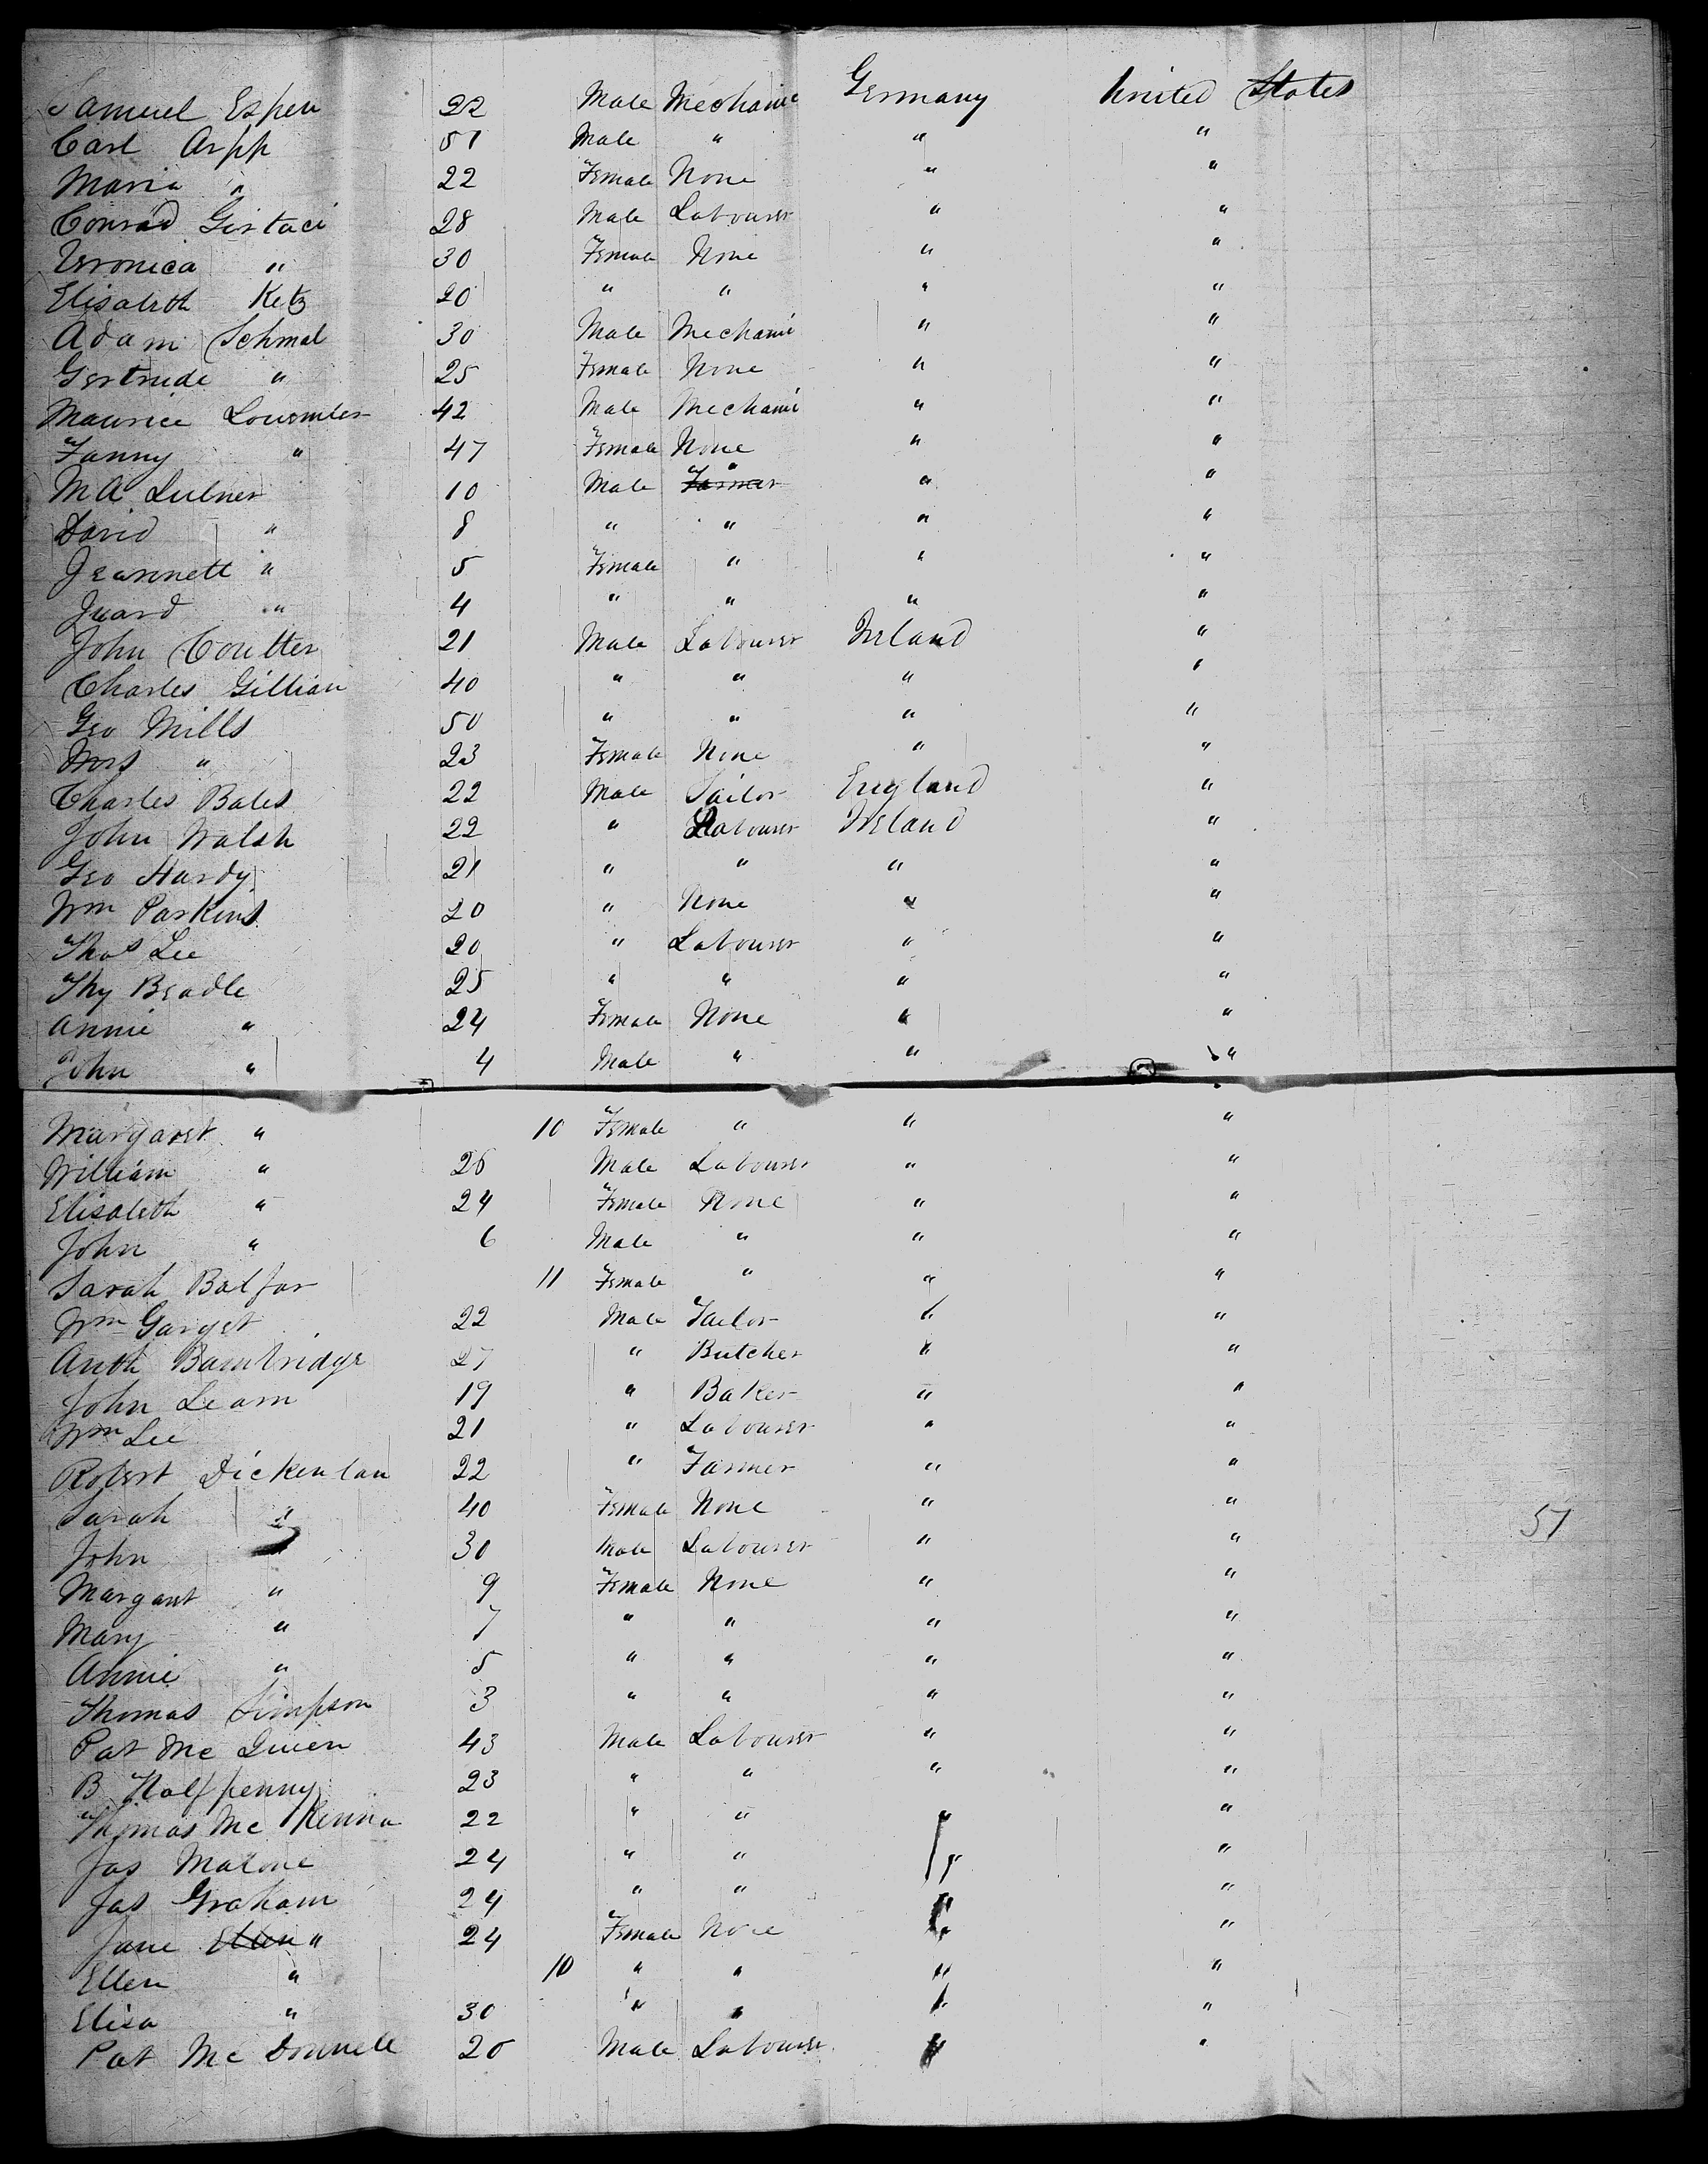 Samuel Espen 22 Male Mechanic Germany United States
Carl Arpp 51 Male " " "
Maria " 22 Female None " "
Conrad Gistaci 28 Male Labourer " "
Veronica " 30 Female None " "
Elisabeth Ketz 20 " " " "
Adam Schmal 30 Male Mechanic " "
Gertrude " 25 Female None " "
Maurice 42 Male Mechanic " "
Fanny " 47 Female None " "
M A Lubner 10 Male " " "
David " 8 " " " "
Jeannett " 5 Female " " "
" 4 " " " "
John Coulter 21 Male Labourer Ireland "
Charles Gillian 40 " " " "
Geo Mills 50 " " " "
Mrs " 23 Female None " "
Charles Bales 22 Male Sailor England "
John Walsh 22 " Labourer Ireland "
Geo Hardy 21 " " " "
Wm Parkins 20 " None " "
Thos Lee 20 " Labourer " "
Thy Beadle 25 " " " "
Annie " 24 Female None " "
John " 4 Male " " "
Margaret " 10 Female " " "
William " 26 Male Labourer " "
Elisabeth " 24 Female None " "
John " 6 Male " " "
Sarah Balfar 11 Female " " "
Wm Garget 22 Male Tailor " "
Anth Bambridge 27 " Butcher " "
John Leam 19 " Baker " "
Wm Lee 21 " Labourer " "
Robert Dickenlan 22 " Farmer " "
Sarah " 40 Female None " " 51
John " 30 Male Labourer " "
Margaret " 9 Female None " "
Mary " 7 " " " "
Annie " 5 " " " "
Thomas Simpson 3 " " " "
Pat Mc 43 Male Labourer " "
B Halfpenny 23 " " " "
Thomas Mc Kenna 22 " " " "
Jas Malone 24 " " " "
Jas Graham 24 " " " "
Jane Ellen " 24 Female None " "
Ellen " 10 " " " "
Elisa " 30 " " " "
Pat Mc Donnell 20 Male Labourer " "